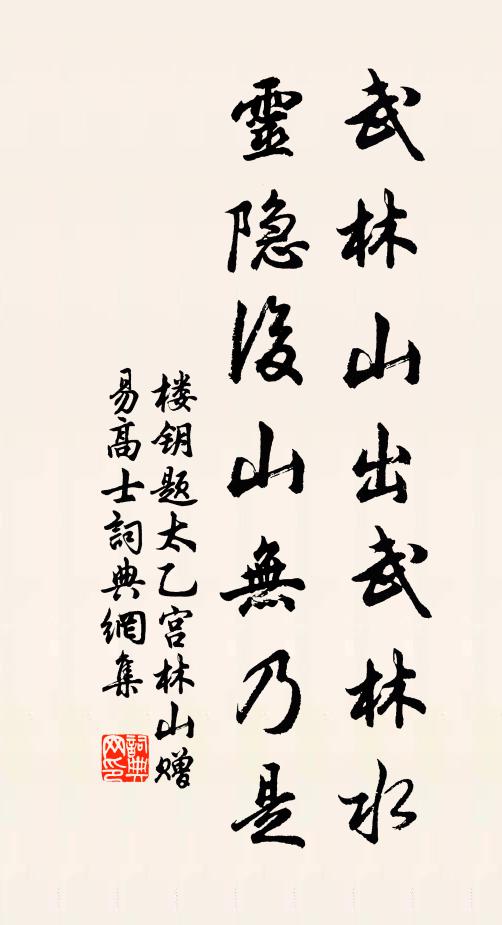 武林山出武林水
靈隐後山無乃是
楼钥题太乙宫林山赠
易高士詞典網集
詞典
网印